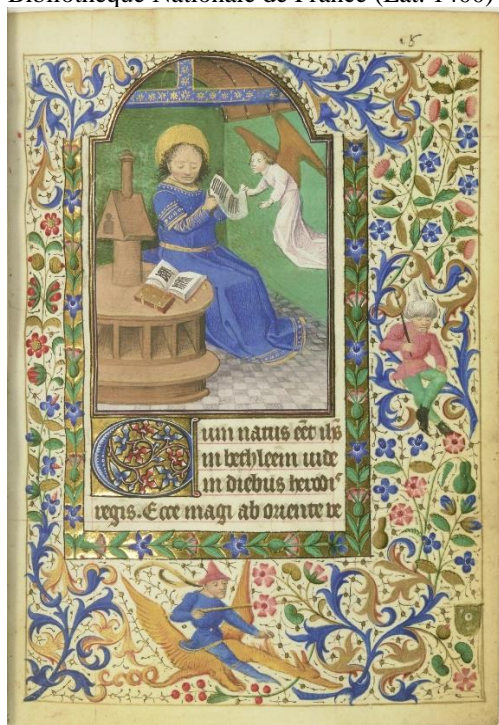 Bibliothèque Nationale de France (Lat. 1400)
Cum natus eēt ih̄s
in bethleem iude
in diebus herodi'
regis. Ecce magi ab oriente ve